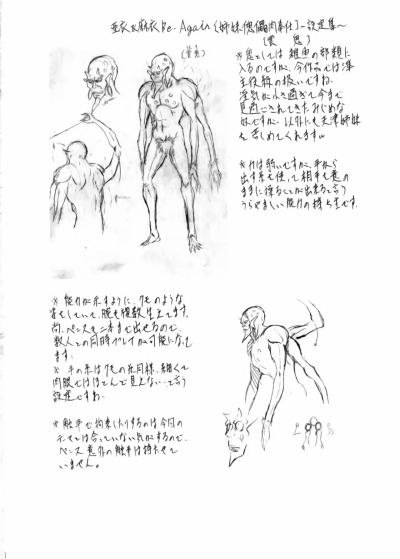 亜衣&麻衣 Re-Again {姉妹傀儡肉奉仕} ~設定集~
(悪鬼)
(蜘蛛)
※鬼としては雑魚の部類に
入るのですが、今作品では準
主役級の扱いですね。
妖気が小さ過ぎて今まで
見過ごされてきたみじめな
奴ですが、以外にも天津姉妹
を苦しめてくれます。
※力は弱いですが、手から
出す糸を使って相手を意の
ままに操ることが出来ると言う
うらやましい能力の持ち主です。
※能力が示すように、クモのような
姿をしていて、腕も複数生えてます。
尚、ペニスも二本まで出せるので、
数人との同時プレイが可能になって
ます。
※ 手の糸はクモの糸同様、細くて
肉眼ではほとんど見えないと言う
設定ですね。
※ 触手で拘束したりするのは今回の
テーマには合っていない気がするので、
ペニス意外の触手は持たせて
いません。